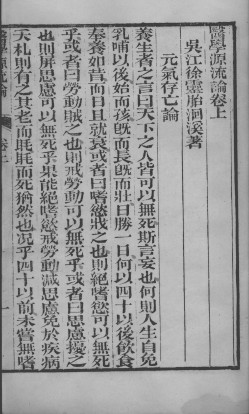 醫學源流論卷上
吳江徐靈胎洄溪著
元氣存亡論
養生者之言曰天下之人皆可以無死斯言妄也何則人生自免
乳哺以後始而孩旣而長旣而壯日勝一日何以四十以後飮食
奉養如昔而日且就衰或者曰嗜慾戕之也則絕嗜慾可以無死
乎或者曰勞動賊之也則戒勞動可以無死乎或者曰思慮擾之
也則屏思慮可以無死乎果能絕嗜慾戒勞動減思慮免於疾病
夭札則有之其老而眊眊而死猶然也況乎四十以前未嘗無嗜
卷上
一